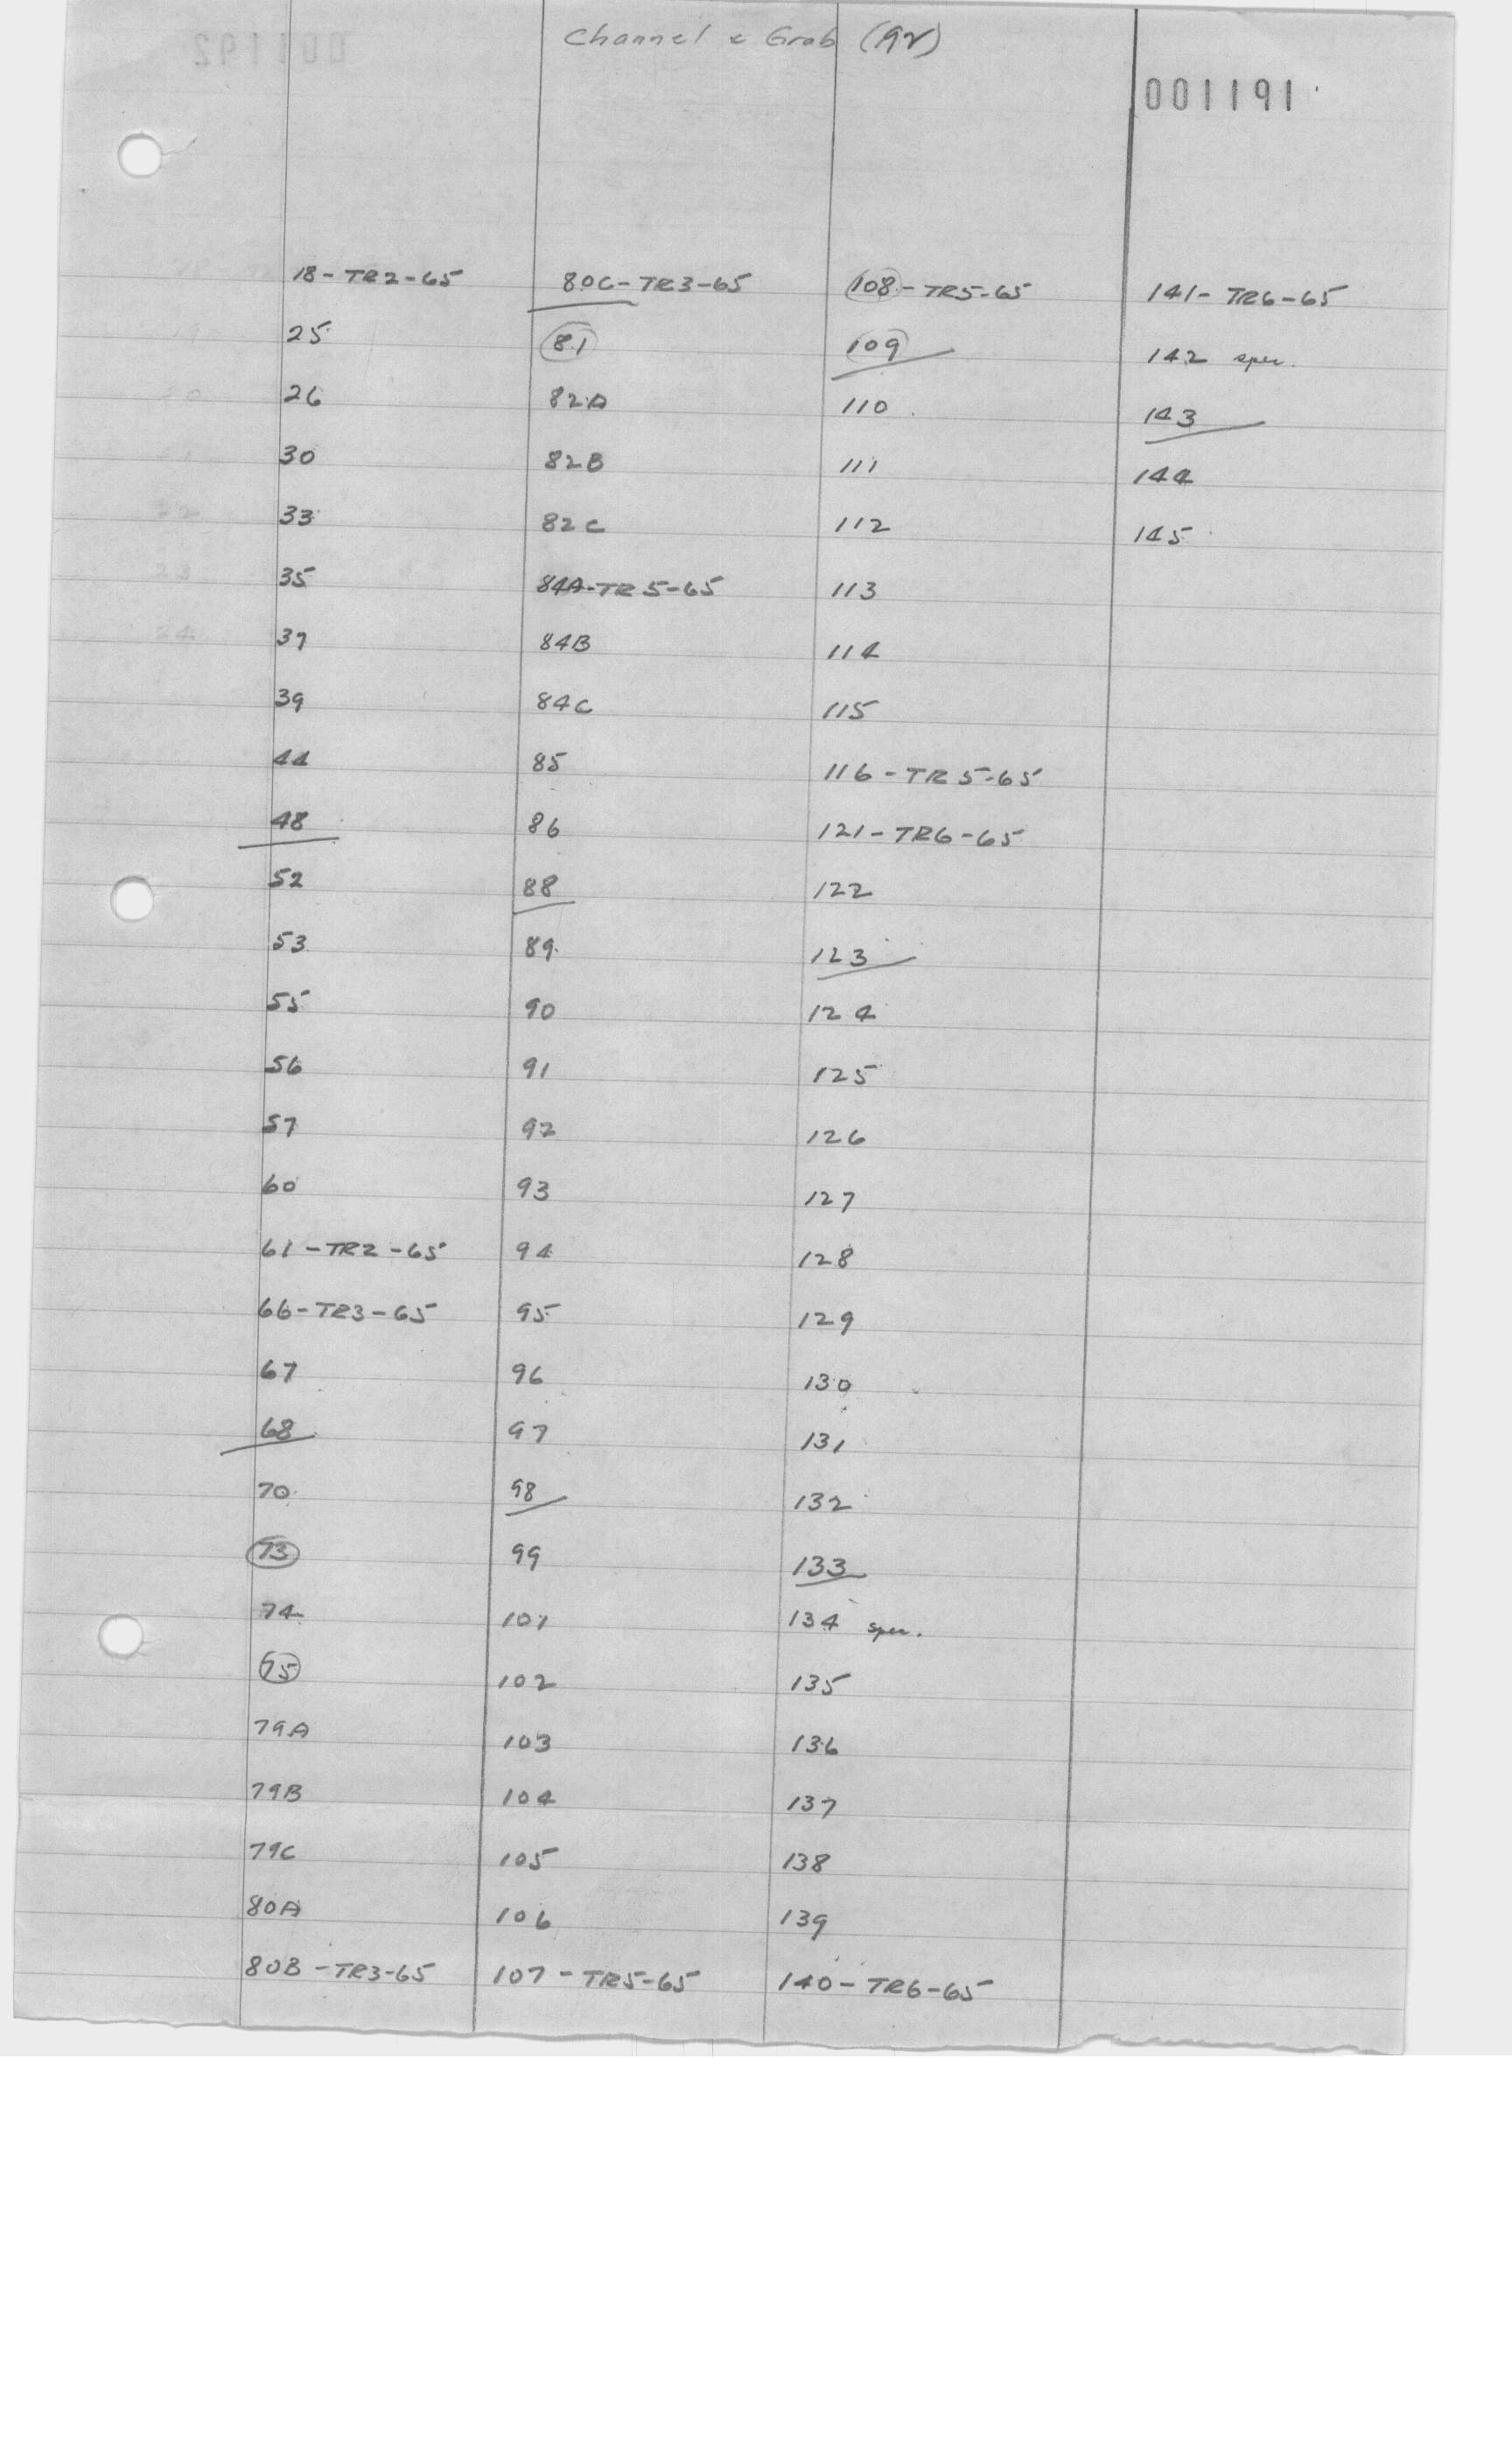 Channel & Grab (92)
001191
18-TR2-65
25
26
30
33
35
37
39
44
48
52
53
55
56
57
60
61-TR2-65
66-TR3-65
67
68
70
73
74
75
79A
79B
79C
80A
80B-TR3-65
80C-TR3-65
81
82A
82B
82C
84A-TR5-65
84B
84C
85
86
88
89
90
91
92
93
94
95
96
97
98
99
101
102
103
104
105
106
107-TR5-65
108-TR5-65
109
110
111
112
113
114
115
116-TR5-65
121-TR6-65
122
123
124
125
126
127
128
129
130
131
132
133
134 spec.
135
136
137
138
139
140-TR6-65
141-TR6-65
142 spec.
143
144
145